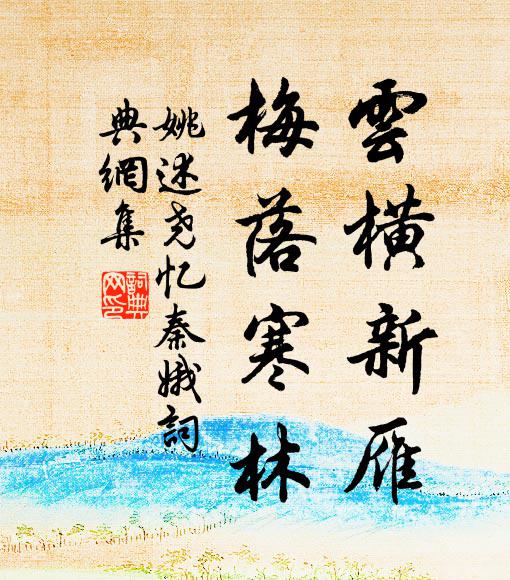 雲橫新雁
梅落寒林
姚述尧忆秦娥詞
典網集
詞典網印